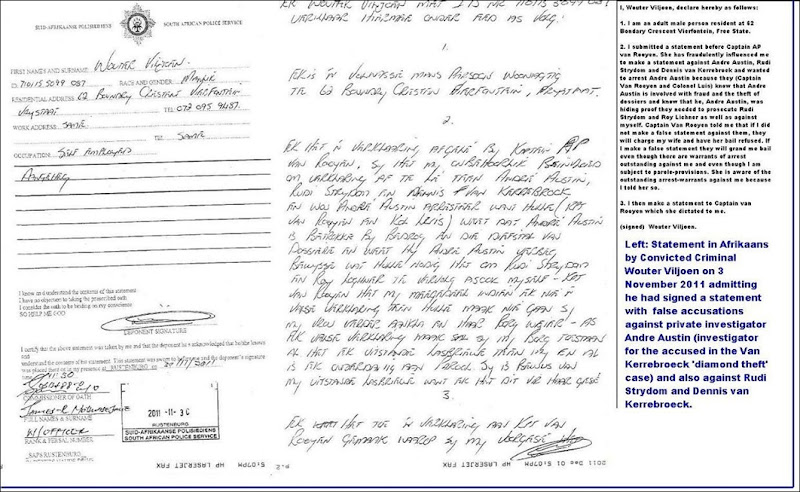 SUID-AFRIKAANSE POLISIEDIENS
SOUTH AFRICAN POLICE SERVICE
FIRST NAMES AND SURNAME: Wouter Viljoen
ID: 710115 5099 087 RACE AND GENDER:
RESIDENTIAL ADDRESS: 62 Boundry
Vrystaat TEL: 072 095 9457
WORK ADDRESS: SAME
TEL: SAME
OCCUPATION: Self Employed
I know and understand the contents of this statement
I have no objection to taking the prescribed oath
I consider the oath to be binding on my conscience
SO HELP ME GOD
DEPONENT SIGNATURE
I certify that the above statement was taken by me and that the deponent
and understand the contents of this statement. This statement was
was placed there on in my presence at RUSTENBURG on 30/11/2011
11:30
COMMISSIONER OF OATH
FULL NAMES & SURNAME
W/OFFICER
RANK & PERSAL NUMBER
SAPS RUSTENBURG
2011 -11- 30
RUSTENBURG
SUID-AFRIKAANSE POLISIEDIENS
SOUTH AFRICAN POLICE SERVICE
p.2 HP LASERJET FAX 5:07PM
1.
Ek is 'n volwasse mans persoon woonagtig
te 62 Boundry
2.
Ek het 'n verklaring afgelê by Kaptein AP
van Rooyen. Sy het my onbehoorlik beinvloed
om verklaring af te lê teen André Austin,
Rudi Strydom en Dennis van Kerrebroeck
en wou André Austin arresteer want hulle (Kpt
van Rooyen en Kol Luis) weet dat André Austin
is betrokke by bedrog en die diefstal van
dossiere en weet hy André Austin versteek
bewyse wat hulle nodig het om Rudi Strydom
en Roy Lichner te vervolg asook myself - Kpt
van Rooyen het my meegedeel indien ek nie 'n
valse verklaring teen hulle maak nie gaan sy
my vrou verder aankla en haar borg weier - as
ek valse verklaring maak sal sy my borg toestaan
al het ek uitstaande lasbriewe teen my en al
is ek onderdanig aan parool. Sy is bewus van
my uitstande lasbriewe want ek het dit vir haar gesê
3.
Ek het toe 'n verklaring aan Kpt van
Rooyen gemaak waarop sy my voorgesê
2011 Dec 01 5:07PM HP LASERJET FAX
I, Wouter Viljoen, declare hereby as follows:
1. I am an adult male person resident at 62
Bondary Crescent Vierfontein, Free State.
2. I submitted a statement before Captain AP
van Rooyen. She has fraudulently influenced me
to make a statement against Andre Austin, Rudi
Strydom and Dennis van Kerrebroeck and wanted
to arrest Andre Austin because they (Captain
Van Rooyen and Colonel Luis) knew that Andre
Austin is involved with fraud and the theft of
dossiers and knew that he, Andre Austin, was
hiding proof they needed to prosecute Rudi
Strydom and Roy Lichner as well as against
myself. Captain Van Rooyen told me that if I did
not make a false statement against them, they
will charge my wife and have her bail refused. If
I make a false statement they will grand me bail
even though there are warrants of arrest
outstanding against me and even though I am
subject to parole-provisions. She is aware of the
outstanding arrest-warrants against me because
I told her so.
3. I then make a statement to Captain van
Rooyen which she dictated to me.
(signed) Wouter Viljoen.
Left: Statement in Afrikaans
by Convicted Criminal
Wouter Viljoen on 3
November 2011 admitting
he had signed a statement
with false accusations
against private investigator
Andre Austin (investigator
for the accused in the Van
Kerrebroeck 'diamond theft'
case) and also against Rudi
Strydom and Dennis van
Kerrebroeck.